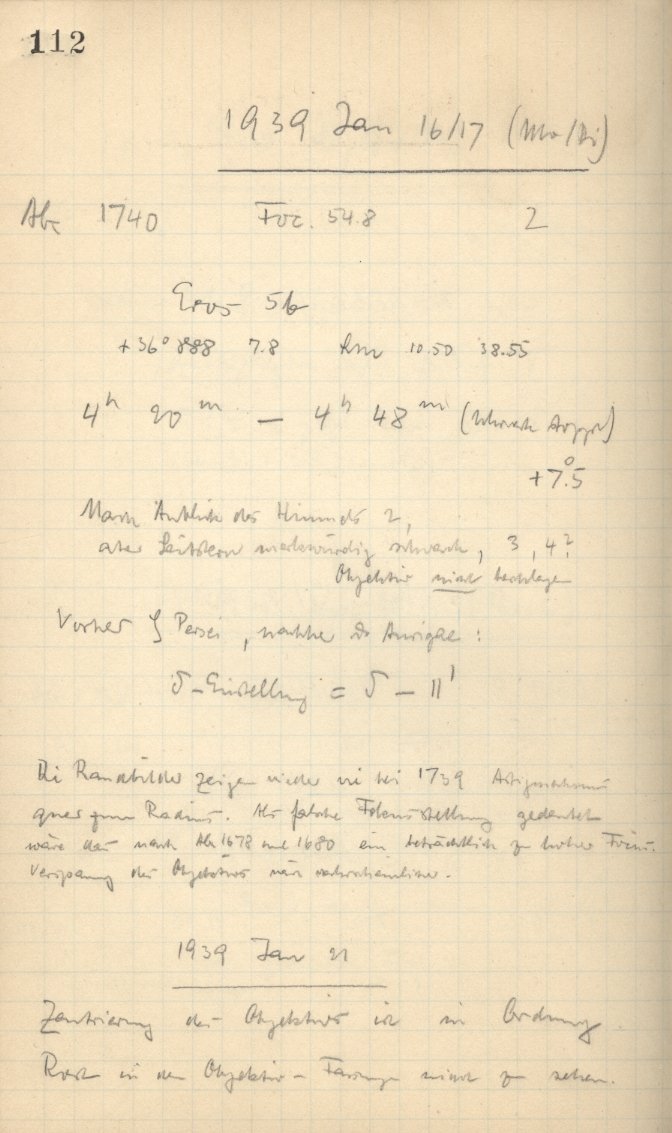 112
1939 Jan 16/17 (Mo/Di)
Ab 1740 Foc. 54.8 2
Eros 5b
+36° 888 7.8 10.50 38.55
4h 20m – 4h 48m (
+7.5°
Nach Anblick des Himmels 2,
aber Leitstern merkwürdig schwach, 3, 4?
Objektiv nicht beschlagen
Vorher ζ Persei, nachher Aurigae:
δ-Einstellung = δ – 11'
Die Randbilder zeigen wieder wie bei 1739 Astigmatismus
quer zum Radius. Als falsche Fokusstellung gedeutet
wäre das nach Ab 1678 und 1680 ein beträchtlich zu hoher Focus.
Verspannung des Objektivs wäre wahrscheinlicher.
1939 Jan 21
Zentrierung des Objektivs ist in Ordnung
Rost in den Objektiv-Fassungen nicht zu sehen.